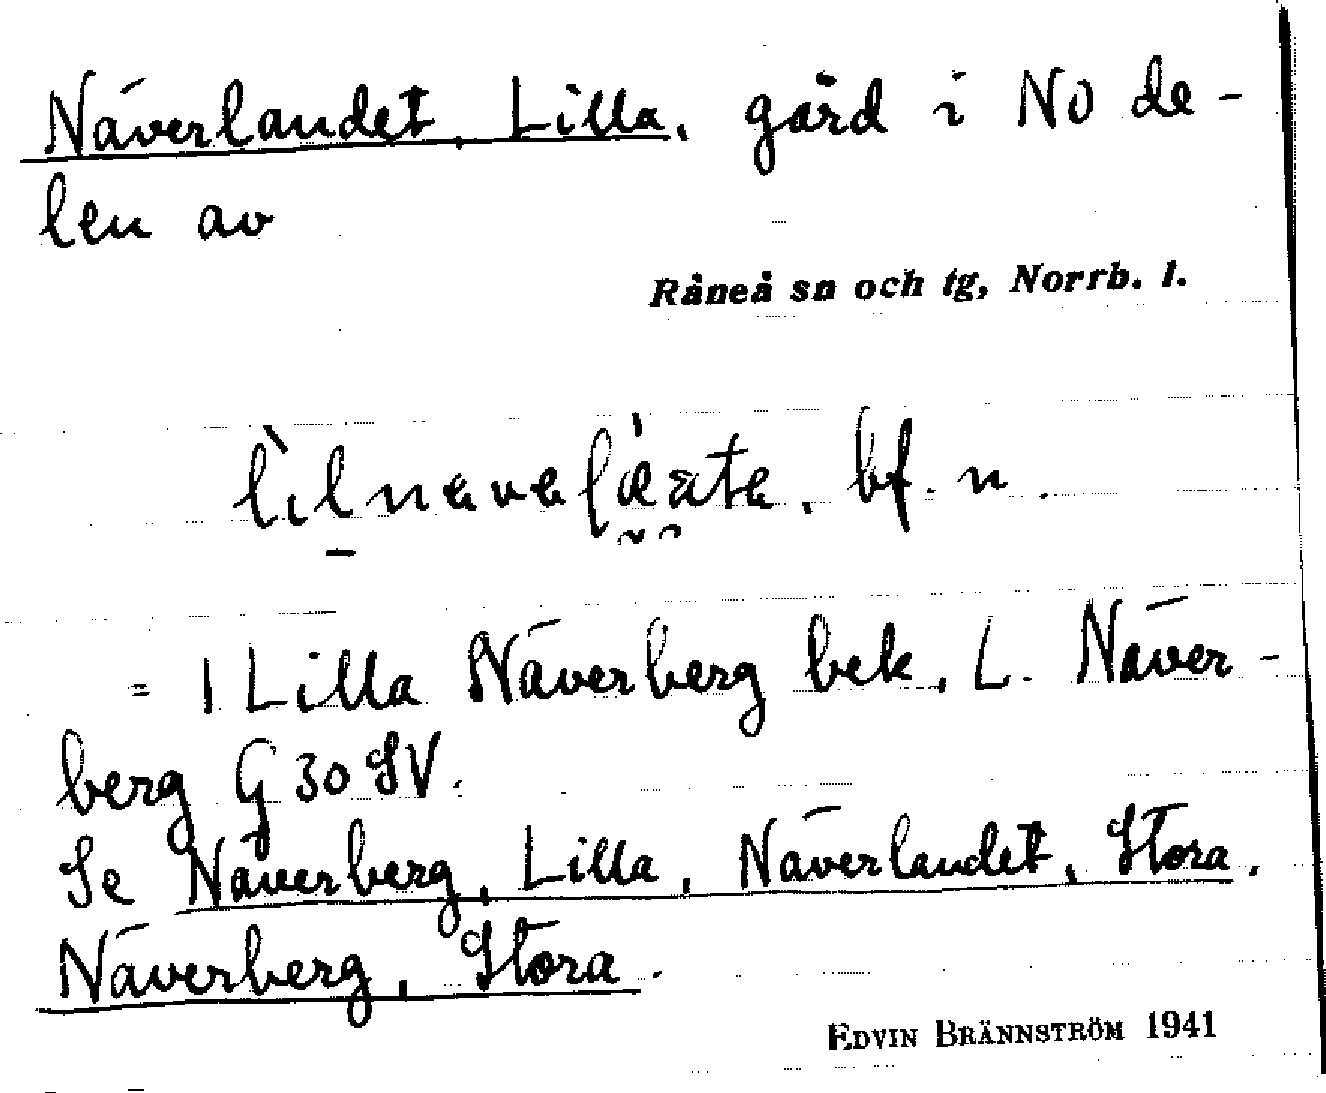 Näverlandet, Lilla, gård i NO de-
len av
Råneå sn och tg, Norrb. l.
bf. n.
= 1 Lilla Näverberg bek, L. Näver-
berg G 30 SV.
Se Näverberg, Lilla, Näverlandet, Stora,
Näverberg, Stora.
EDVIN BRÄNNSTRÖM 1941